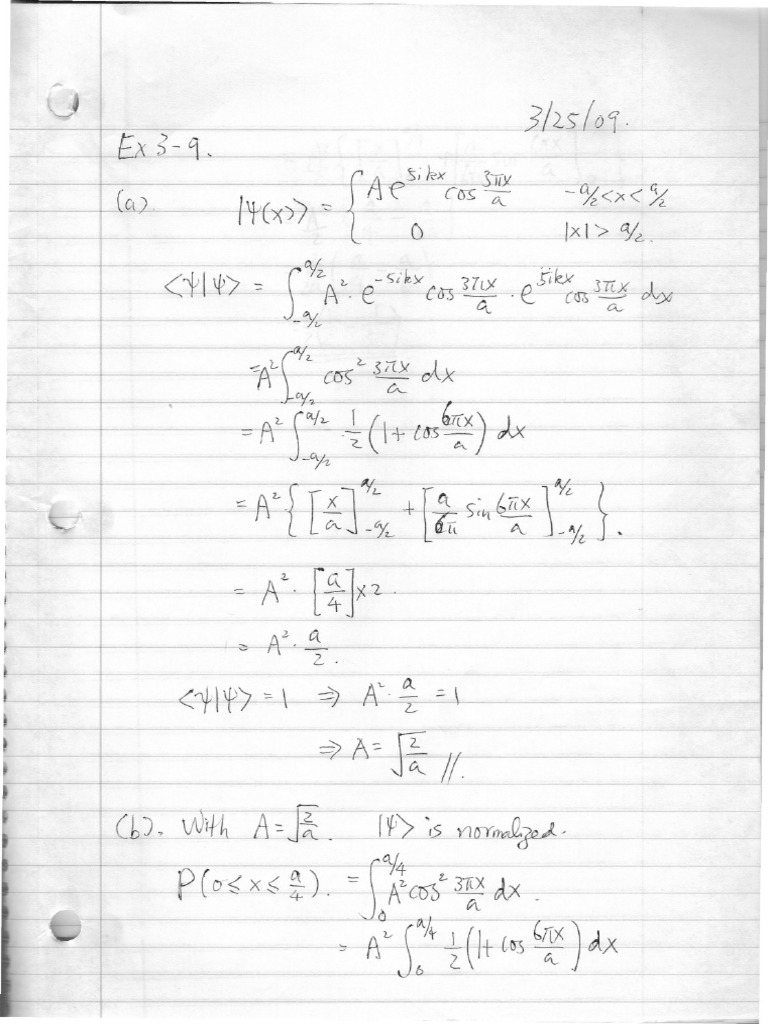 3/25/09.
Ex 3-9.
(a). |Ψ(x)> = { A e^{5ikx} cos 3πx/a   -a/2<x<a/2
0   |x| > a/2.
<Ψ|Ψ> = ∫_{-a/2}^{a/2} A² · e^{-5ikx} cos 3πx/a · e^{5ikx} cos 3πx/a dx
= A² ∫_{-a/2}^{a/2} cos² 3πx/a dx
= A² ∫_{-a/2}^{a/2} · 1/2 (1 + cos 6πx/a) dx
= A² { [x/a]_{-a/2}^{a/2} + [a/6π sin 6πx/a]_{-a/2}^{a/2} }.
= A² · [a/4] x 2.
= A² · a/2.
<Ψ|Ψ> = 1 ⇒ A² · a/2 = 1
⇒ A = √(2/a) //.
(b). With A = √(2/a). |Ψ> is normalized.
P(0 ≤ x ≤ a/4). = ∫_0^{a/4} A² cos² 3πx/a dx.
= A² ∫_0^{a/4} 1/2 (1 + cos 6πx/a) dx